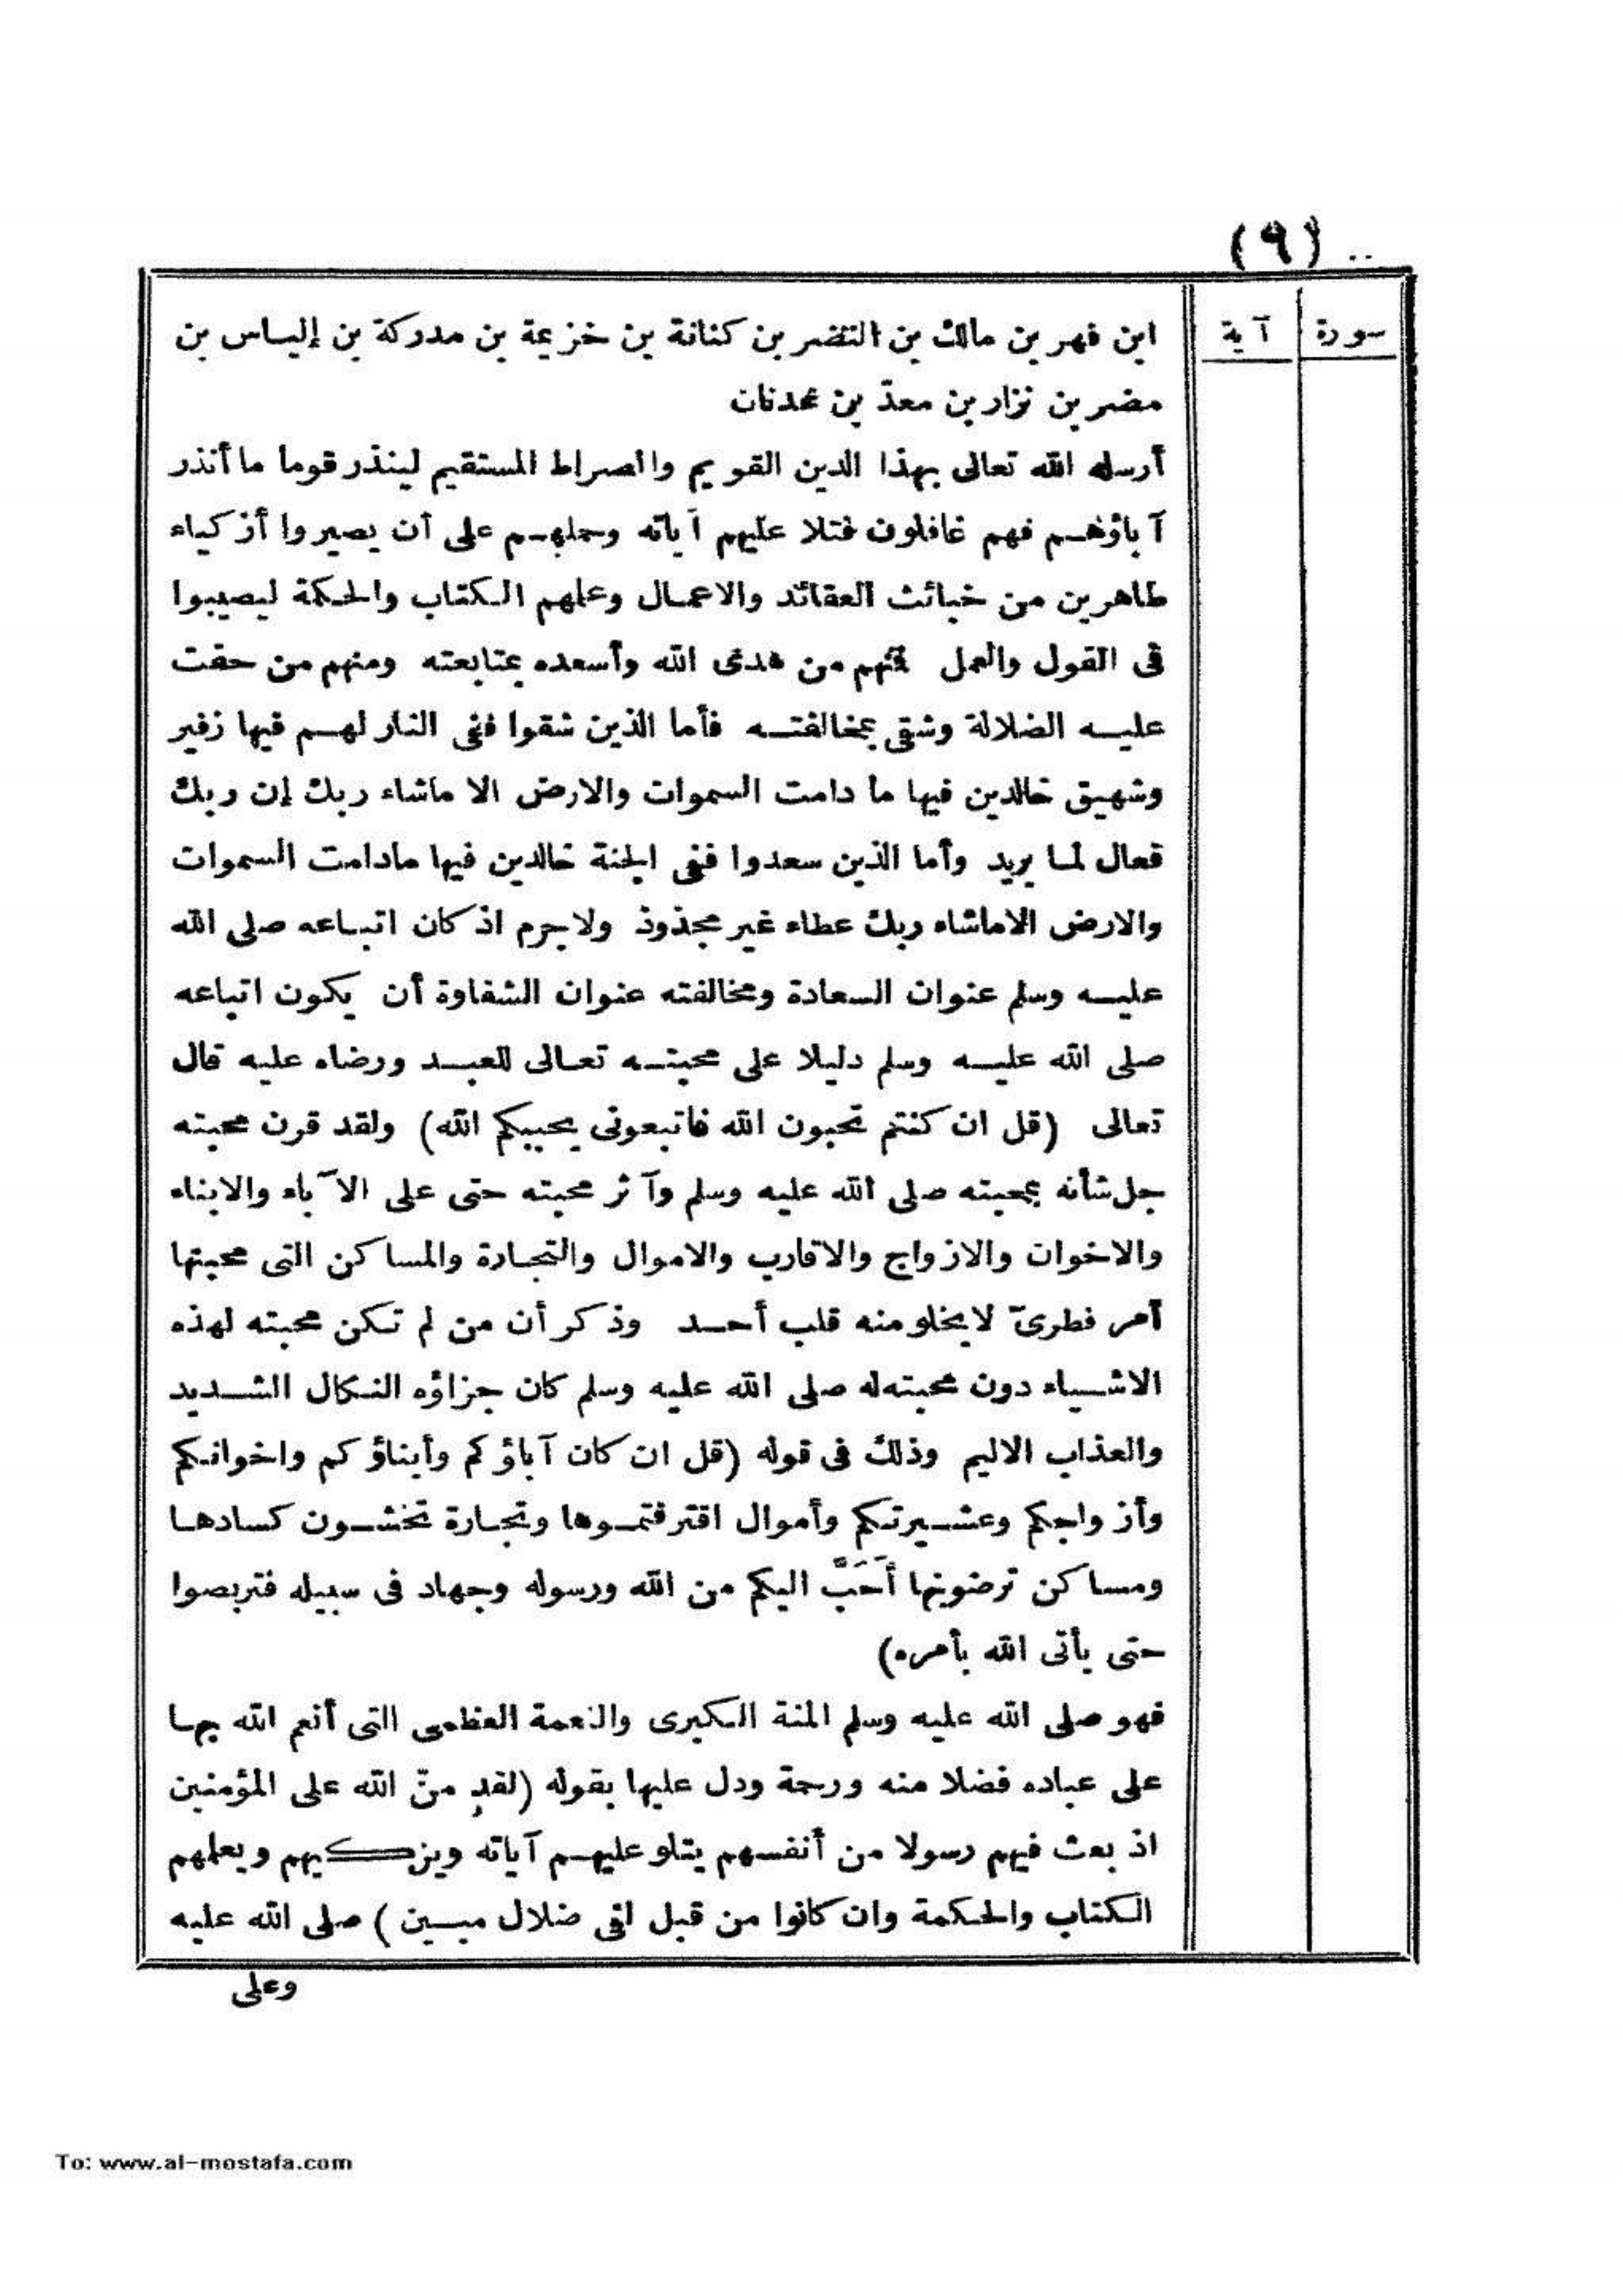 (٩)
سورة آية
ابن فهر بن مالك بن النضر بن كنانة بن خزيمة بن مدركة بن إلياس بن
مضر بن نزار بن معدّ بن عدنان
أرسله الله تعالى بهذا الدين القويم والصراط المستقيم لينذر قوما ما أنذر
آباؤهم فهم غافلون فتلا عليهم آياته وحملهم على أن يصيروا أزكياء
طاهرين من خبائث العقائد والاعمال وعلمهم الكتاب والحكمة ليصيبوا
فى القول والعمل فمنهم من هدى الله وأسعده بمتابعته ومنهم من حقت
عليه الضلالة وشقى بمخالفته فأما الذين شقوا ففى النار لهم فيها زفير
وشهيق خالدين فيها ما دامت السموات والارض الا ماشاء ربك إن ربك
فعال لما يريد وأما الذين سعدوا ففى الجنة خالدين فيها مادامت السموات
والارض الاماشاء ربك عطاء غير مجذوذ ولاجرم اذ كان اتباعه صلى الله
عليه وسلم عنوان السعادة ومخالفته عنوان الشقاوة أن يكون اتباعه
صلى الله عليه وسلم دليلا على محبته تعالى للعبد ورضاه عليه قال
تعالى (قل ان كنتم تحبون الله فاتبعونى يحببكم الله) ولقد قرن محبته
جل شأنه بمحبته صلى الله عليه وسلم وآثر محبته حتى على الآباء والابناء
والاخوان والازواج والاقارب والاموال والتجارة والمساكن التى محبتها
أمر فطرىّ لايخلو منه قلب أحد وذكر أن من لم تكن محبته لهذه
الاشياء دون محبته له صلى الله عليه وسلم كان جزاؤه النكال الشديد
والعذاب الاليم وذلك فى قوله (قل ان كان آباؤكم وأبناؤكم واخوانكم
وأزواجكم وعشيرتكم وأموال اقترفتموها وتجارة تخشون كسادها
ومساكن ترضونها أَحَبَّ اليكم من الله ورسوله وجهاد فى سبيله فتربصوا
حتى يأتى الله بأمره)
فهو صلى الله عليه وسلم المنة الكبرى والنعمة العظمى التى أنعم الله بها
على عباده فضلا منه ورحمة ودل عليها بقوله (لقد منّ الله على المؤمنين
اذ بعث فيهم رسولا من أنفسهم يتلو عليهم آياته ويزكيهم ويعلمهم
الكتاب والحكمة وان كانوا من قبل لفى ضلال مبين) صلى الله عليه
وعلى
To: www.al-mostafa.com